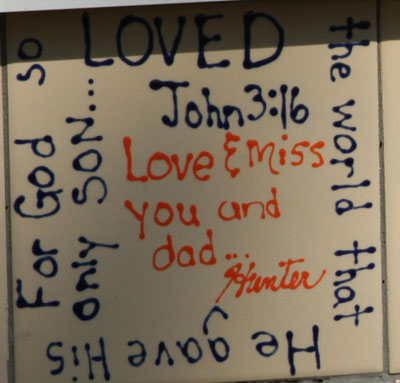 For God so
LOVED
the world that
He gave His
only SON...
John 3:16
Love & Miss
you and
dad...
Hunter